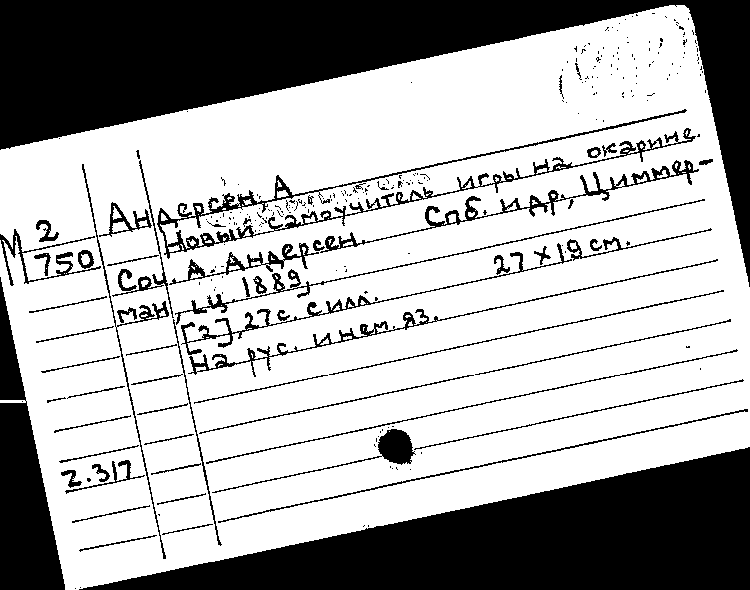 М 2
750
Андерсен, А
Новый самоучитель игры на окарине.
Соч. А. Андерсен. Спб. и др., Циммер-
ман, ц. 1889,
[2], 27 с. с илл. 27 × 19 см.
На рус. и нем. яз.
2.317